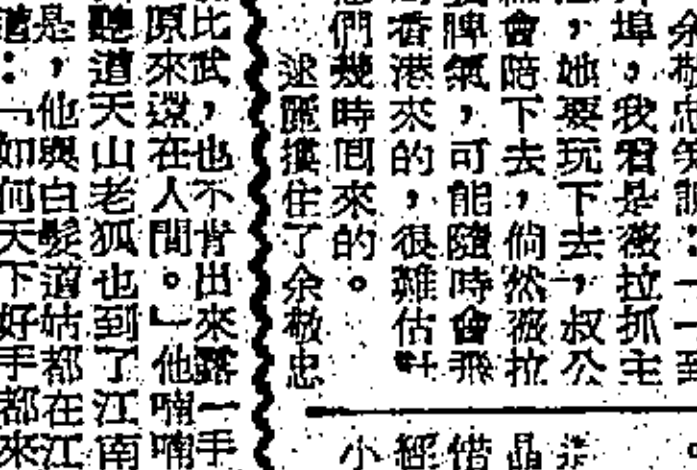 余敬忠笑說：「一到
埠，我看是薇拉抓主
，她要玩下去，叔公
會陪下去，倘然薇拉
脾氣，可能隨時會飛
香港來的，很難估計
們幾時回來的。
逑麗摟住了余敬忠
小
借
晶
比武，也不肯出來露一手
原來還在人間。」他喃喃
聽道天山老狐也到了江南
是，他與白髮道姑都在江
道：「如何天下好手都來